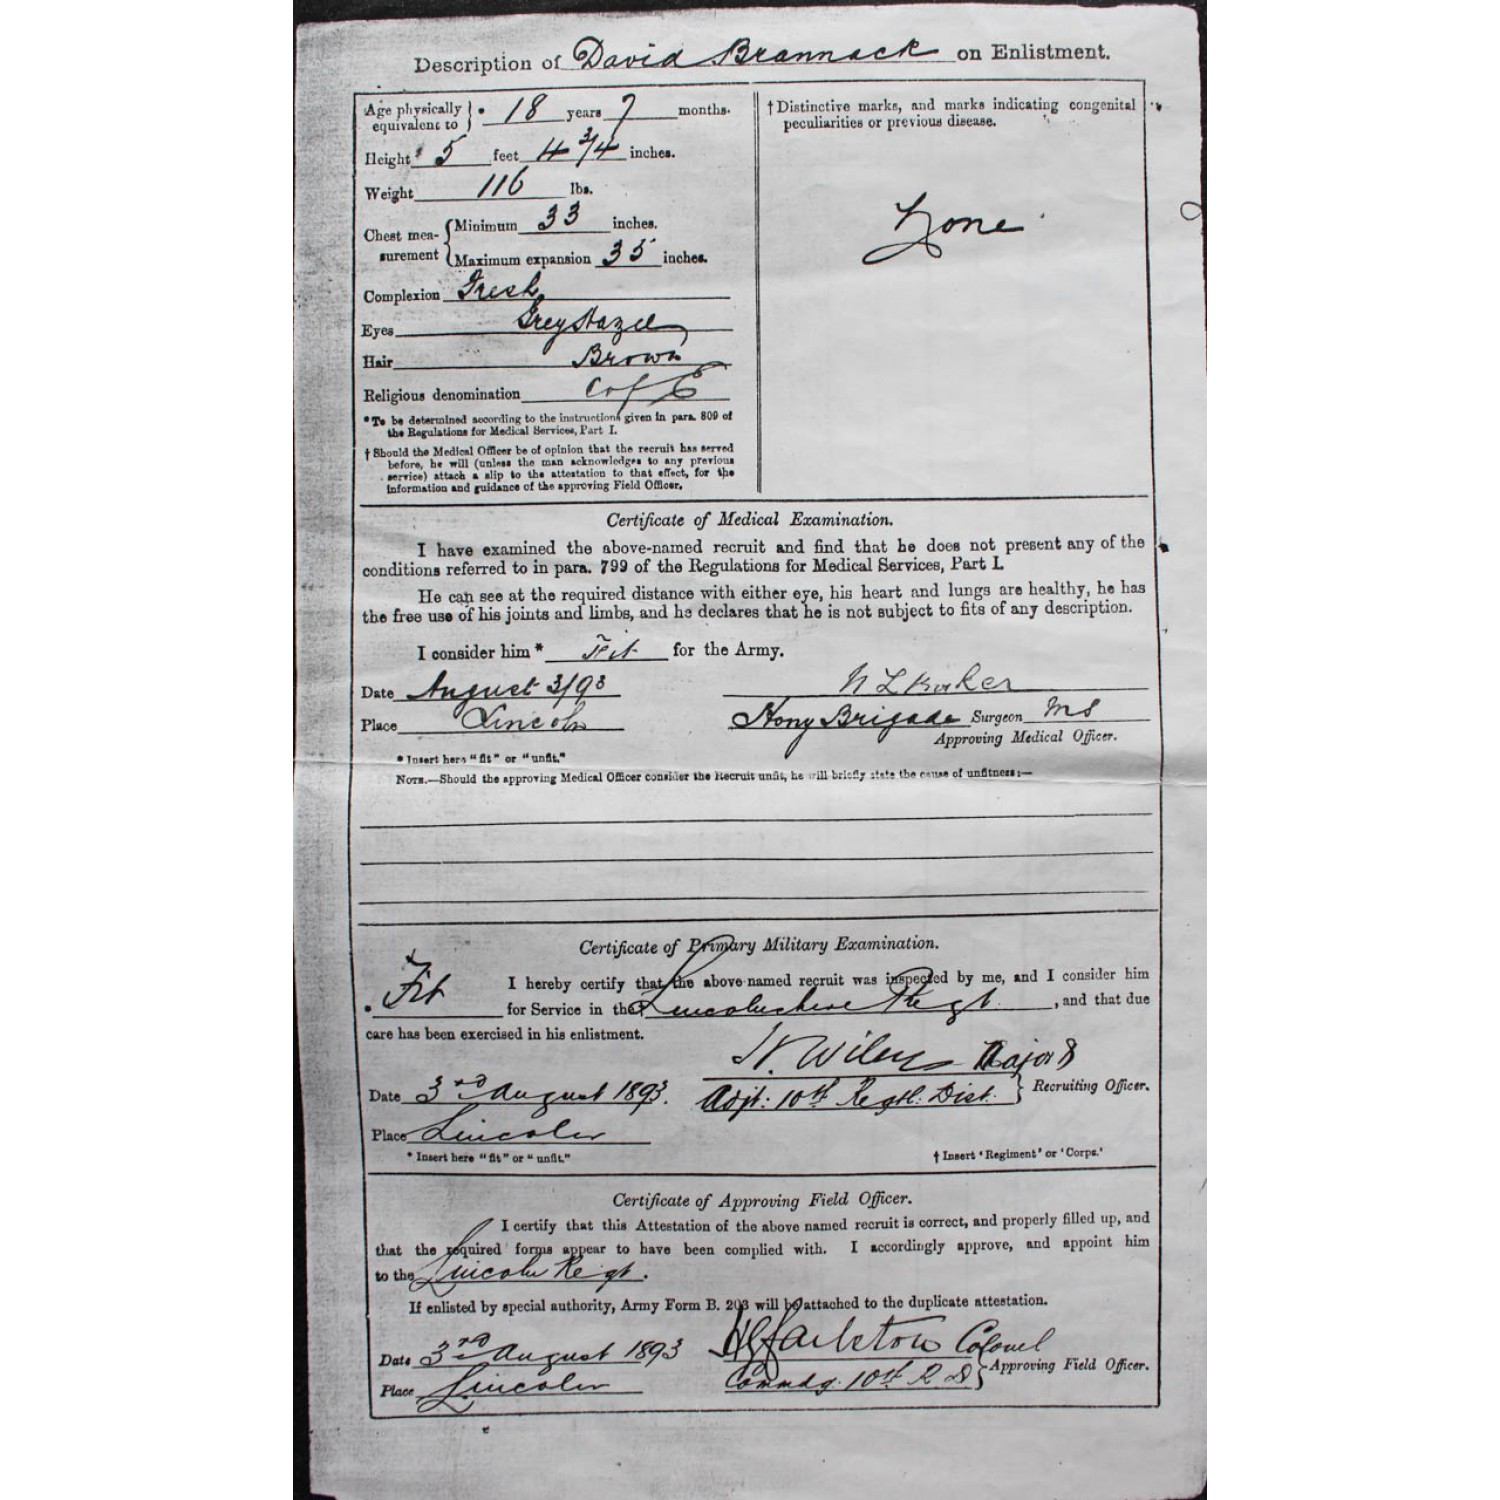 Description of David Brannack on Enlistment.
Age physically equivalent to } * 18 years 7 months.
Height 5 feet 4 3/4 inches.
Weight 116 lbs.
Chest measurement { Minimum 33 inches.
Maximum expansion 35 inches.
Complexion Fresh
Eyes Grey Hazel
Hair Brown
Religious denomination C of E
* To be determined according to the instructions given in para. 809 of
the Regulations for Medical Services, Part I.
† Should the Medical Officer be of opinion that the recruit has served
before, he will (unless the man acknowledges to any previous
service) attach a slip to the attestation to that effect, for the
information and guidance of the approving Field Officer.
† Distinctive marks, and marks indicating congenital
peculiarities or previous disease.
None
Certificate of Medical Examination.
I have examined the above-named recruit and find that he does not present any of the
conditions referred to in para. 799 of the Regulations for Medical Services, Part I.
He can see at the required distance with either eye, his heart and lungs are healthy, he has
the free use of his joints and limbs, and he declares that he is not subject to fits of any description.
I consider him * Fit for the Army.
Date August 3/93
Place Lincoln
Hony Brigade Surgeon MS
Approving Medical Officer.
* Insert here "fit" or "unfit."
NOTE.—Should the approving Medical Officer consider the Recruit unfit, he will briefly state the cause of unfitness:—
Certificate of Primary Military Examination.
* Fit I hereby certify that the above-named recruit was inspected by me, and I consider him
for Service in the Lincolnshire Regt. , and that due
care has been exercised in his enlistment.
Major
Date 3rd August 1893. Adjt: 10th Regtl. Dist. } Recruiting Officer.
Place Lincoln
* Insert here "fit" or "unfit." † Insert 'Regiment' or 'Corps.'
Certificate of Approving Field Officer.
I certify that this Attestation of the above named recruit is correct, and properly filled up, and
that the required forms appear to have been complied with. I accordingly approve, and appoint him
to the Lincoln Regt.
If enlisted by special authority, Army Form B. 203 will be attached to the duplicate attestation.
Date 3rd August 1893 Colonel
Place Lincoln Commdg. 10th R. D. } Approving Field Officer.